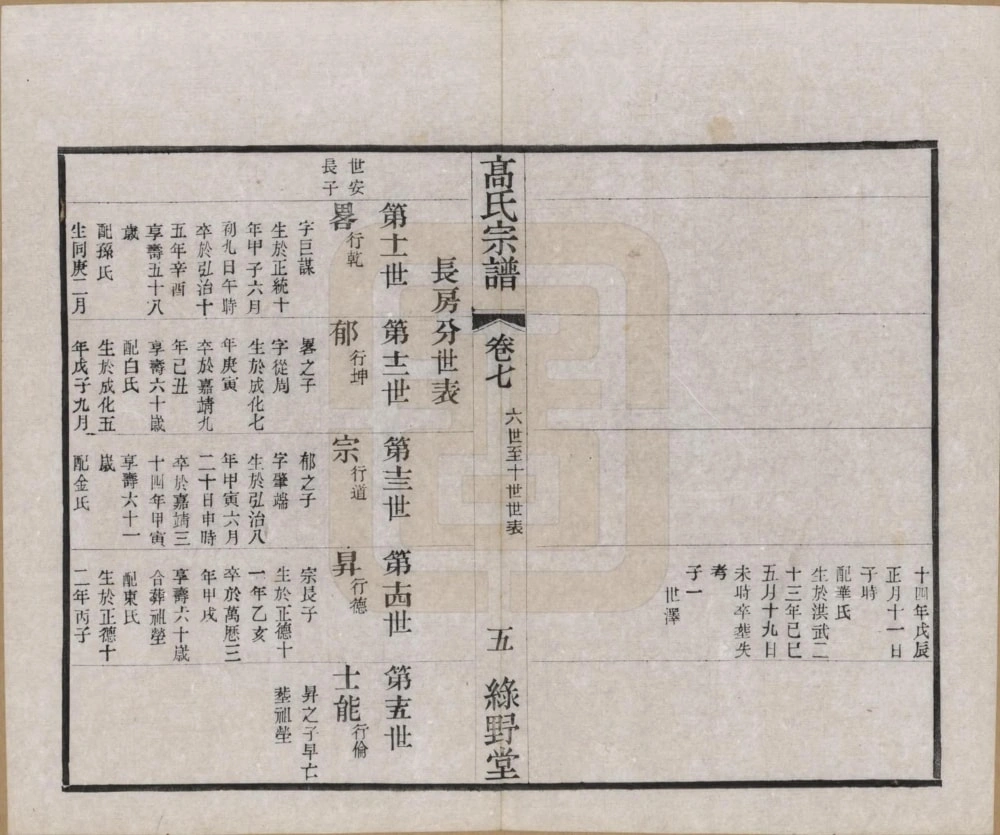 十四年戊辰
正月十一日
子時
配華氏
生於洪武二
十三年己巳
五月十九日
未時卒塟失
考
子一
世澤
高氏宗譜
卷七
六世至十世世表
五
綠野堂
長房分世表
第十一世
世安
長子
畧行乾
字巨謀
生於正統十
年甲子六月
初九日午時
卒於弘治十
五年辛酉
享壽五十八
歲
配孫氏
生同庚二月
第十二世
郁行坤
畧之子
字從周
生於成化七
年庚寅
卒於嘉靖九
年己丑
享壽六十歲
配白氏
生於成化五
年戊子九月
第十三世
宗行道
郁之子
字肇端
生於弘治八
年甲寅六月
二十日申時
卒於嘉靖三
十四年甲寅
享壽六十一
歲
配金氏
第十四世
昇行德
宗長子
生於正德十
一年乙亥
卒於萬厯三
年甲戌
享壽六十歲
合葬祖塋
配東氏
生於正德十
二年丙子
第十五世
士能行倫
昇之子早亡
塟祖塋